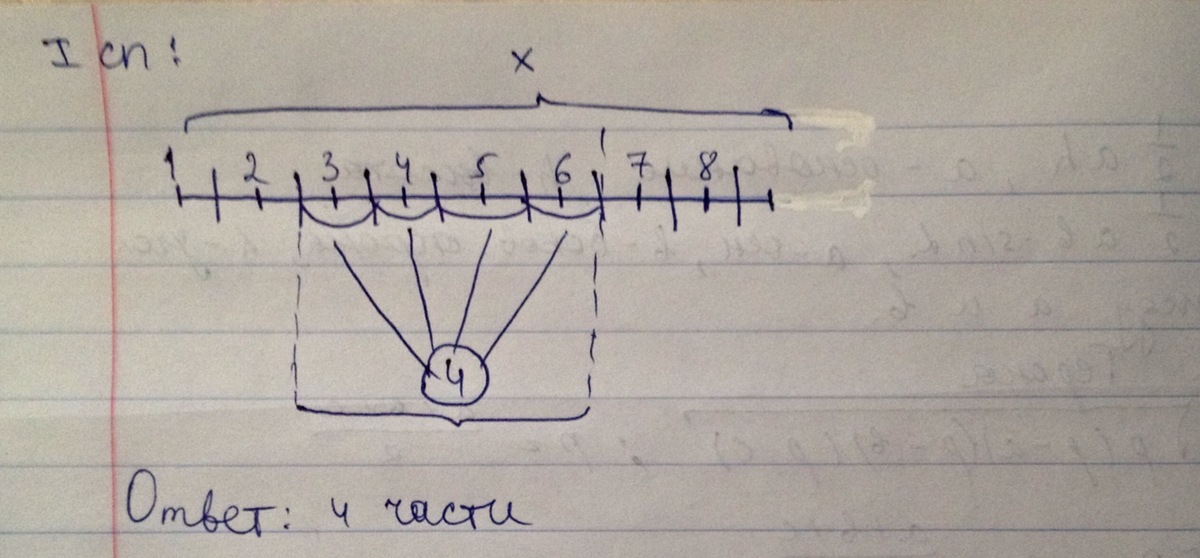 I сп:
x
1 2 3 4 5 6 7 8
4
Ответ: 4 части